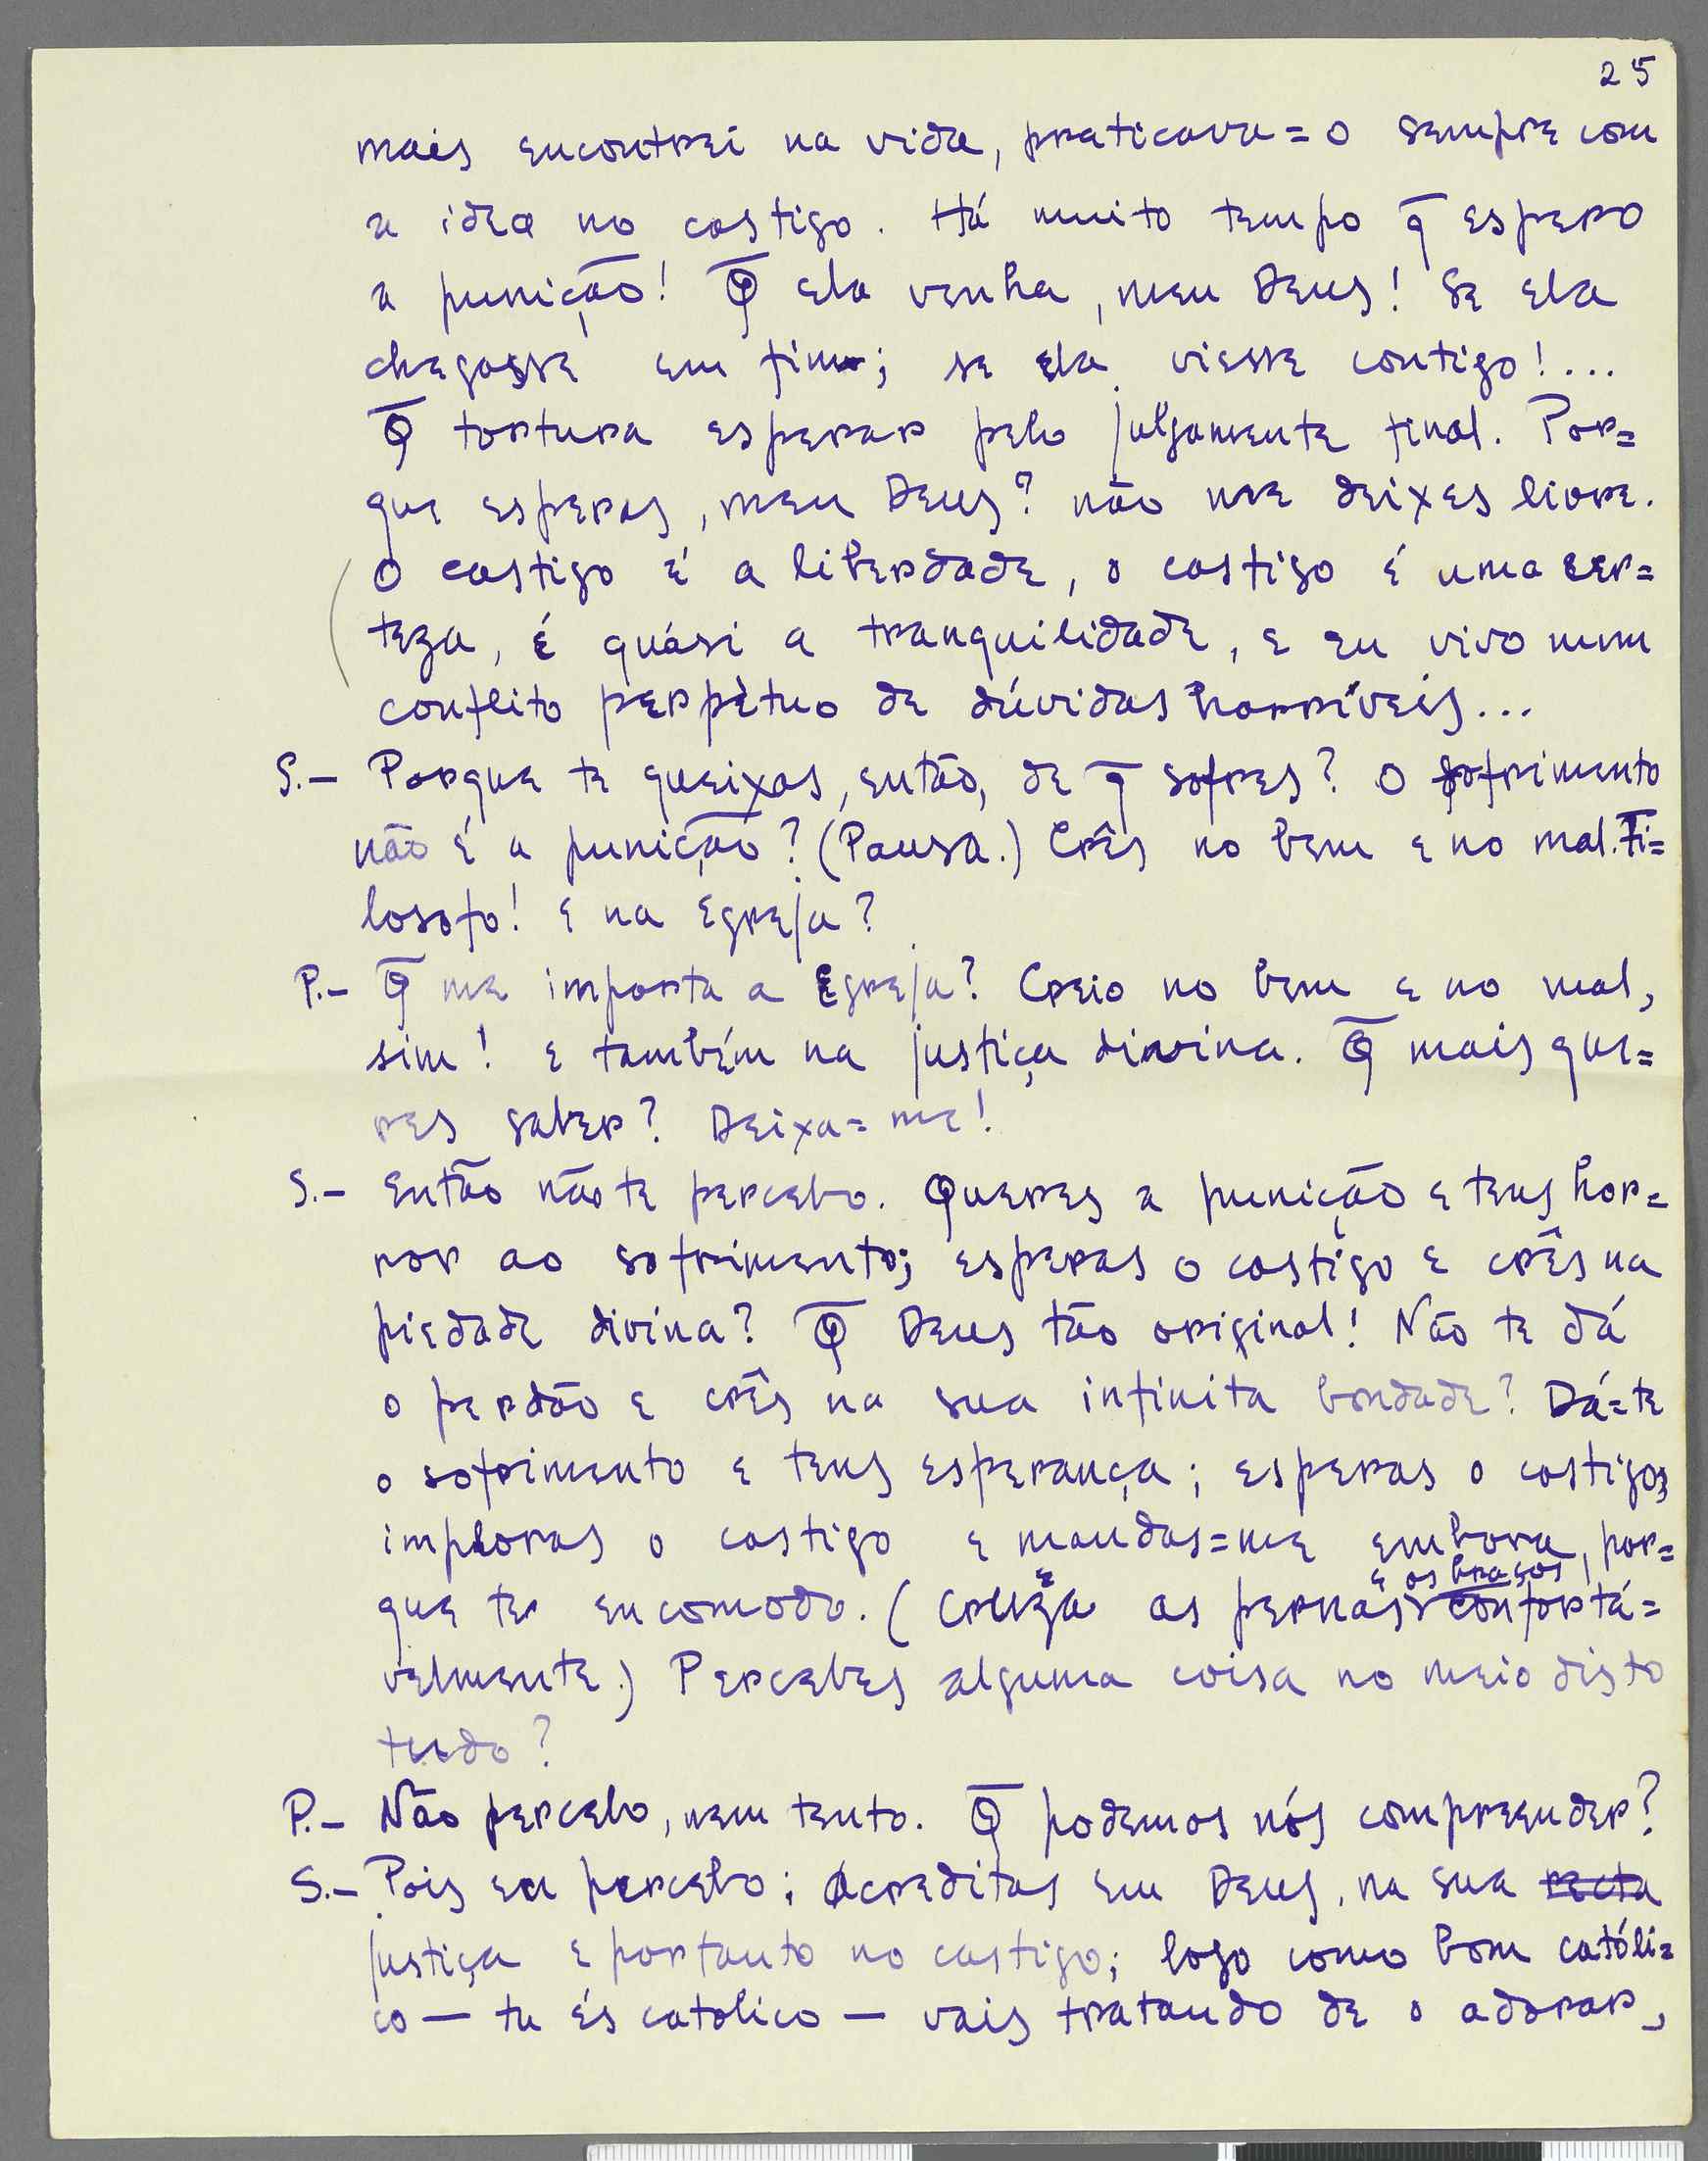 25
mais encontrei na vida, praticava=o sempre com
a idea no castigo. Há muito tempo q̄ espero
a punição! Q̄ ela venha, meu Deus! Se ela
chegasse em fim; se ela viesse contigo!...
Q̄ tortura esperar pelo julgamente final. Por=
que esperas, meu Deus? não me deixes livre.
O castigo é a liberdade, o castigo é uma cer=
teza, é quási a tranquilidade, e eu vivo num
conflito perpètuo de dúvidas horríveis...
S.— Porque te queixas, então, de q̄ sofres? O sofrimento
não é a punição? (Pausa.) Crês no bem e no mal. Fi=
losofo! E na Egreja?
P.— Q̄ me importa a Egreja? Creio no bem e no mal,
sim! e também na justiça divina. Q̄ mais que=
res saber? Deixa=me!
S.— Então não te percebo. Queres a punição e tens hor=
ror ao sofrimento; esperas o castigo e crês na
piedade divina? Q̄ Deus tão original! Não te dá
o perdão e crês na sua infinita bondade? Dá=te
o sofrimento e tens esperança; esperas o castigo,
imploras o castigo e mandas=me embora, por=
e os braços
que te encomodo. (Cruza as pernas confortá=
velmente.) Percebes alguma coisa no meio disto
tudo?
P.— Não percebo, nem tento. Q̄ podemos nós compreender?
S.— Pois eu percebo; Acreditas em Deus, na sua recta
justiça e portanto no castigo; logo como bom católi=
co — tu és catolico — vais tratando de o adorar,